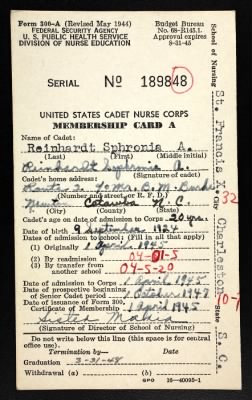 Form 306-A (Revised May 1944)
FEDERAL SECURITY AGENCY
U. S. PUBLIC HEALTH SERVICE
DIVISION OF NURSE EDUCATION
Budget Bureau
No. 68-R145.1.
Approval expires
8-31-45
SERIAL No 189848
UNITED STATES CADET NURSE CORPS
MEMBERSHIP CARD A
Name of Cadet:
Reinhardt Sphronia A.
(Last) (First) (Middle initial)
Reinhardt Sphronia A.
Cadet's home address: (Signature of cadet)
Route 2. % Mr. B. M.
(Number and street, or R. F. D.)
Newton Catawba N. C.
(City) (County) (State)
Cadet's age on date of admission to Corps 20 yrs.
Date of birth 9 September 1924
Dates of admission to school: (Fill in all that apply)
(1) Originally 1 April 1945
(2) By readmission 04-01-5
(3) By transfer from another school 04-5-20
Date of admission to Corps 1 April 1945
Date of prospective beginning of Senior Cadet period 1 October 1947
Date of issuance of Form 300, Certificate of Membership 1 April 1945
Sister
(Signature of Director of School of Nursing)
Do not write below this line (this space is for central office use).
Termination by— Date
Graduation 3-31-48
Withdrawal (a) (b)
GPO 16-40095-1
School of Nursing St. Francis X.
City Charleston
State S. C.
32
10-7